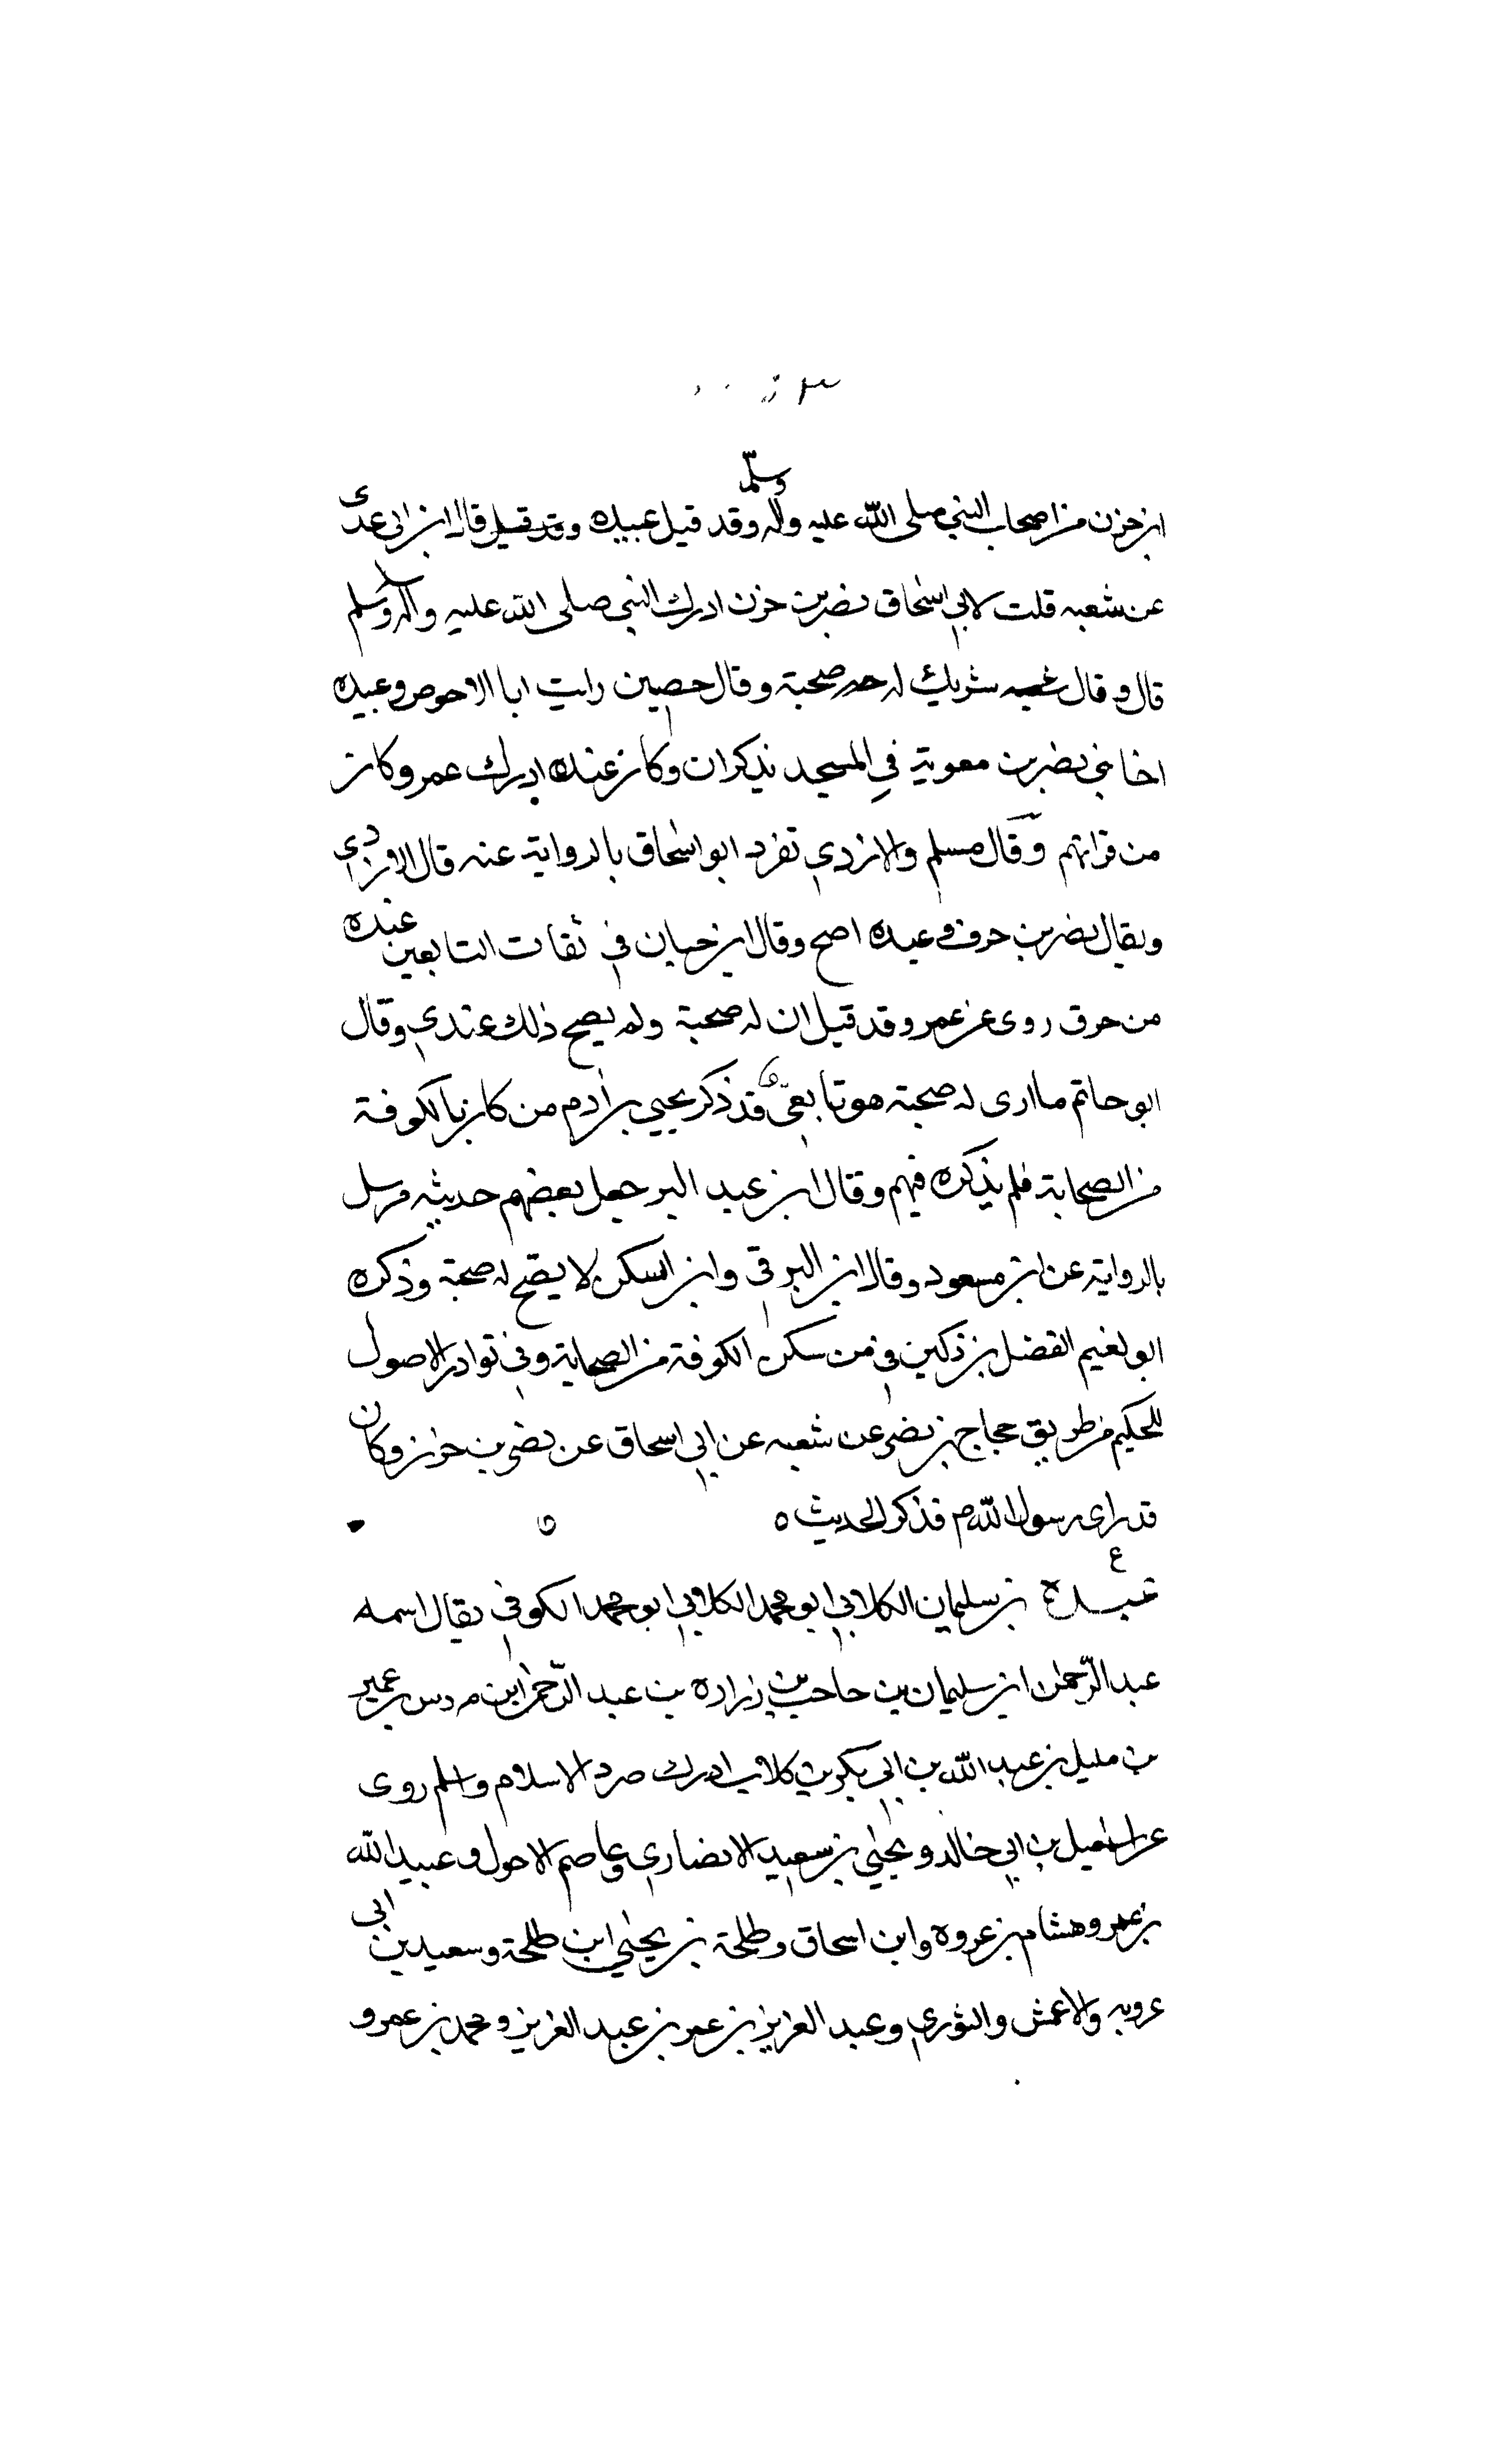 وسلم
ابن حزن من اصحاب النبي صلى الله عليه واله وقد قيل عبيده وقد قيل قال ابن ابى عدى
عن شعبه قلت لابي اسحاق نصر بن حزن ادرك النبي صلى الله عليه واله وسلم
قال و قال شعبه شريك له صحبة وقال حصين رايت ابا الاحوص وعبيده
اخا بني نضر بن معوية في المسجد يذكران وكان عبده ادرك عمر وكان
من قرائهم وقال مسلم والازدي تفرد ابو اسحاق بالرواية عنه قال الازدي
ويقال نصر بن حزن وعبده اصح وقال ابن حبان في ثقات التابعين عبده
من حرق روى عن عمر وقد قيل ان له صحبة ولم يصح ذلك عندي وقال
ابو حاتم ما ارى له صحبة هو تابعي قد ذكر يحيى بن ادم من كان بالكوفة
من الصحابة فلم يذكره فيهم وقال ابن عبد البر جعل بعضهم حديثه مرسل
بالرواية عن ابن مسعود وقال ابن البرقي وابن السكن لا يصح له صحبة وذكره
ابو نعيم الفضل بن دكين في من سكن الكوفة من الصحابة وفي نوادر الاصول
للحكيم من طريق حجاج بن نصر عن شعبه عن ابي اسحاق عن نصر بن حزن وكان
قد راى رسول الله م فذكر الحديث ه
ع
عبدة بن سليمان الكلابي ابو محمد الكلابي ابو محمد الكوفي يقال اسمه
عبد الرحمن ابن سليمان بن حاجب بن زراره بن عبد الرحمن ابن صرد بن عمير
بن مليل بن عبد الله بن ابي بكر بن كلاب ادرك صرد الاسلام واسلم روى
عن اسمعيل بن ابي خالد و يحيى بن سعيد الانصاري وعاصم الاحول وعبيد الله
بن عمر وهشام بن عروه وابن اسحاق وطلحة بن يحيى ابن طلحة وسعيد بن ابى
عروبه والاعمش والثوري وعبد العزيز بن عمر بن عبد العزيز ومحمد بن عمرو